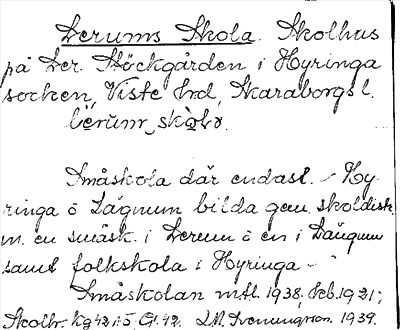 Lerums Skola. Skolhus
på Ler. Stöckgården i Hyringa
socken, Viste hrd, Skaraborgs l.
lèrumr skòla.
Småskola där endast. – Hy-
ringa o Längnum bilda gem. skoldistr.
m. en småsk. i Lerum o en i Längnum
samt folkskola i Hyringa –
Småskolan mtl. 1938; feb. 1921;
Skolhr. Kg 42 A5. Gl. 42. 1939.